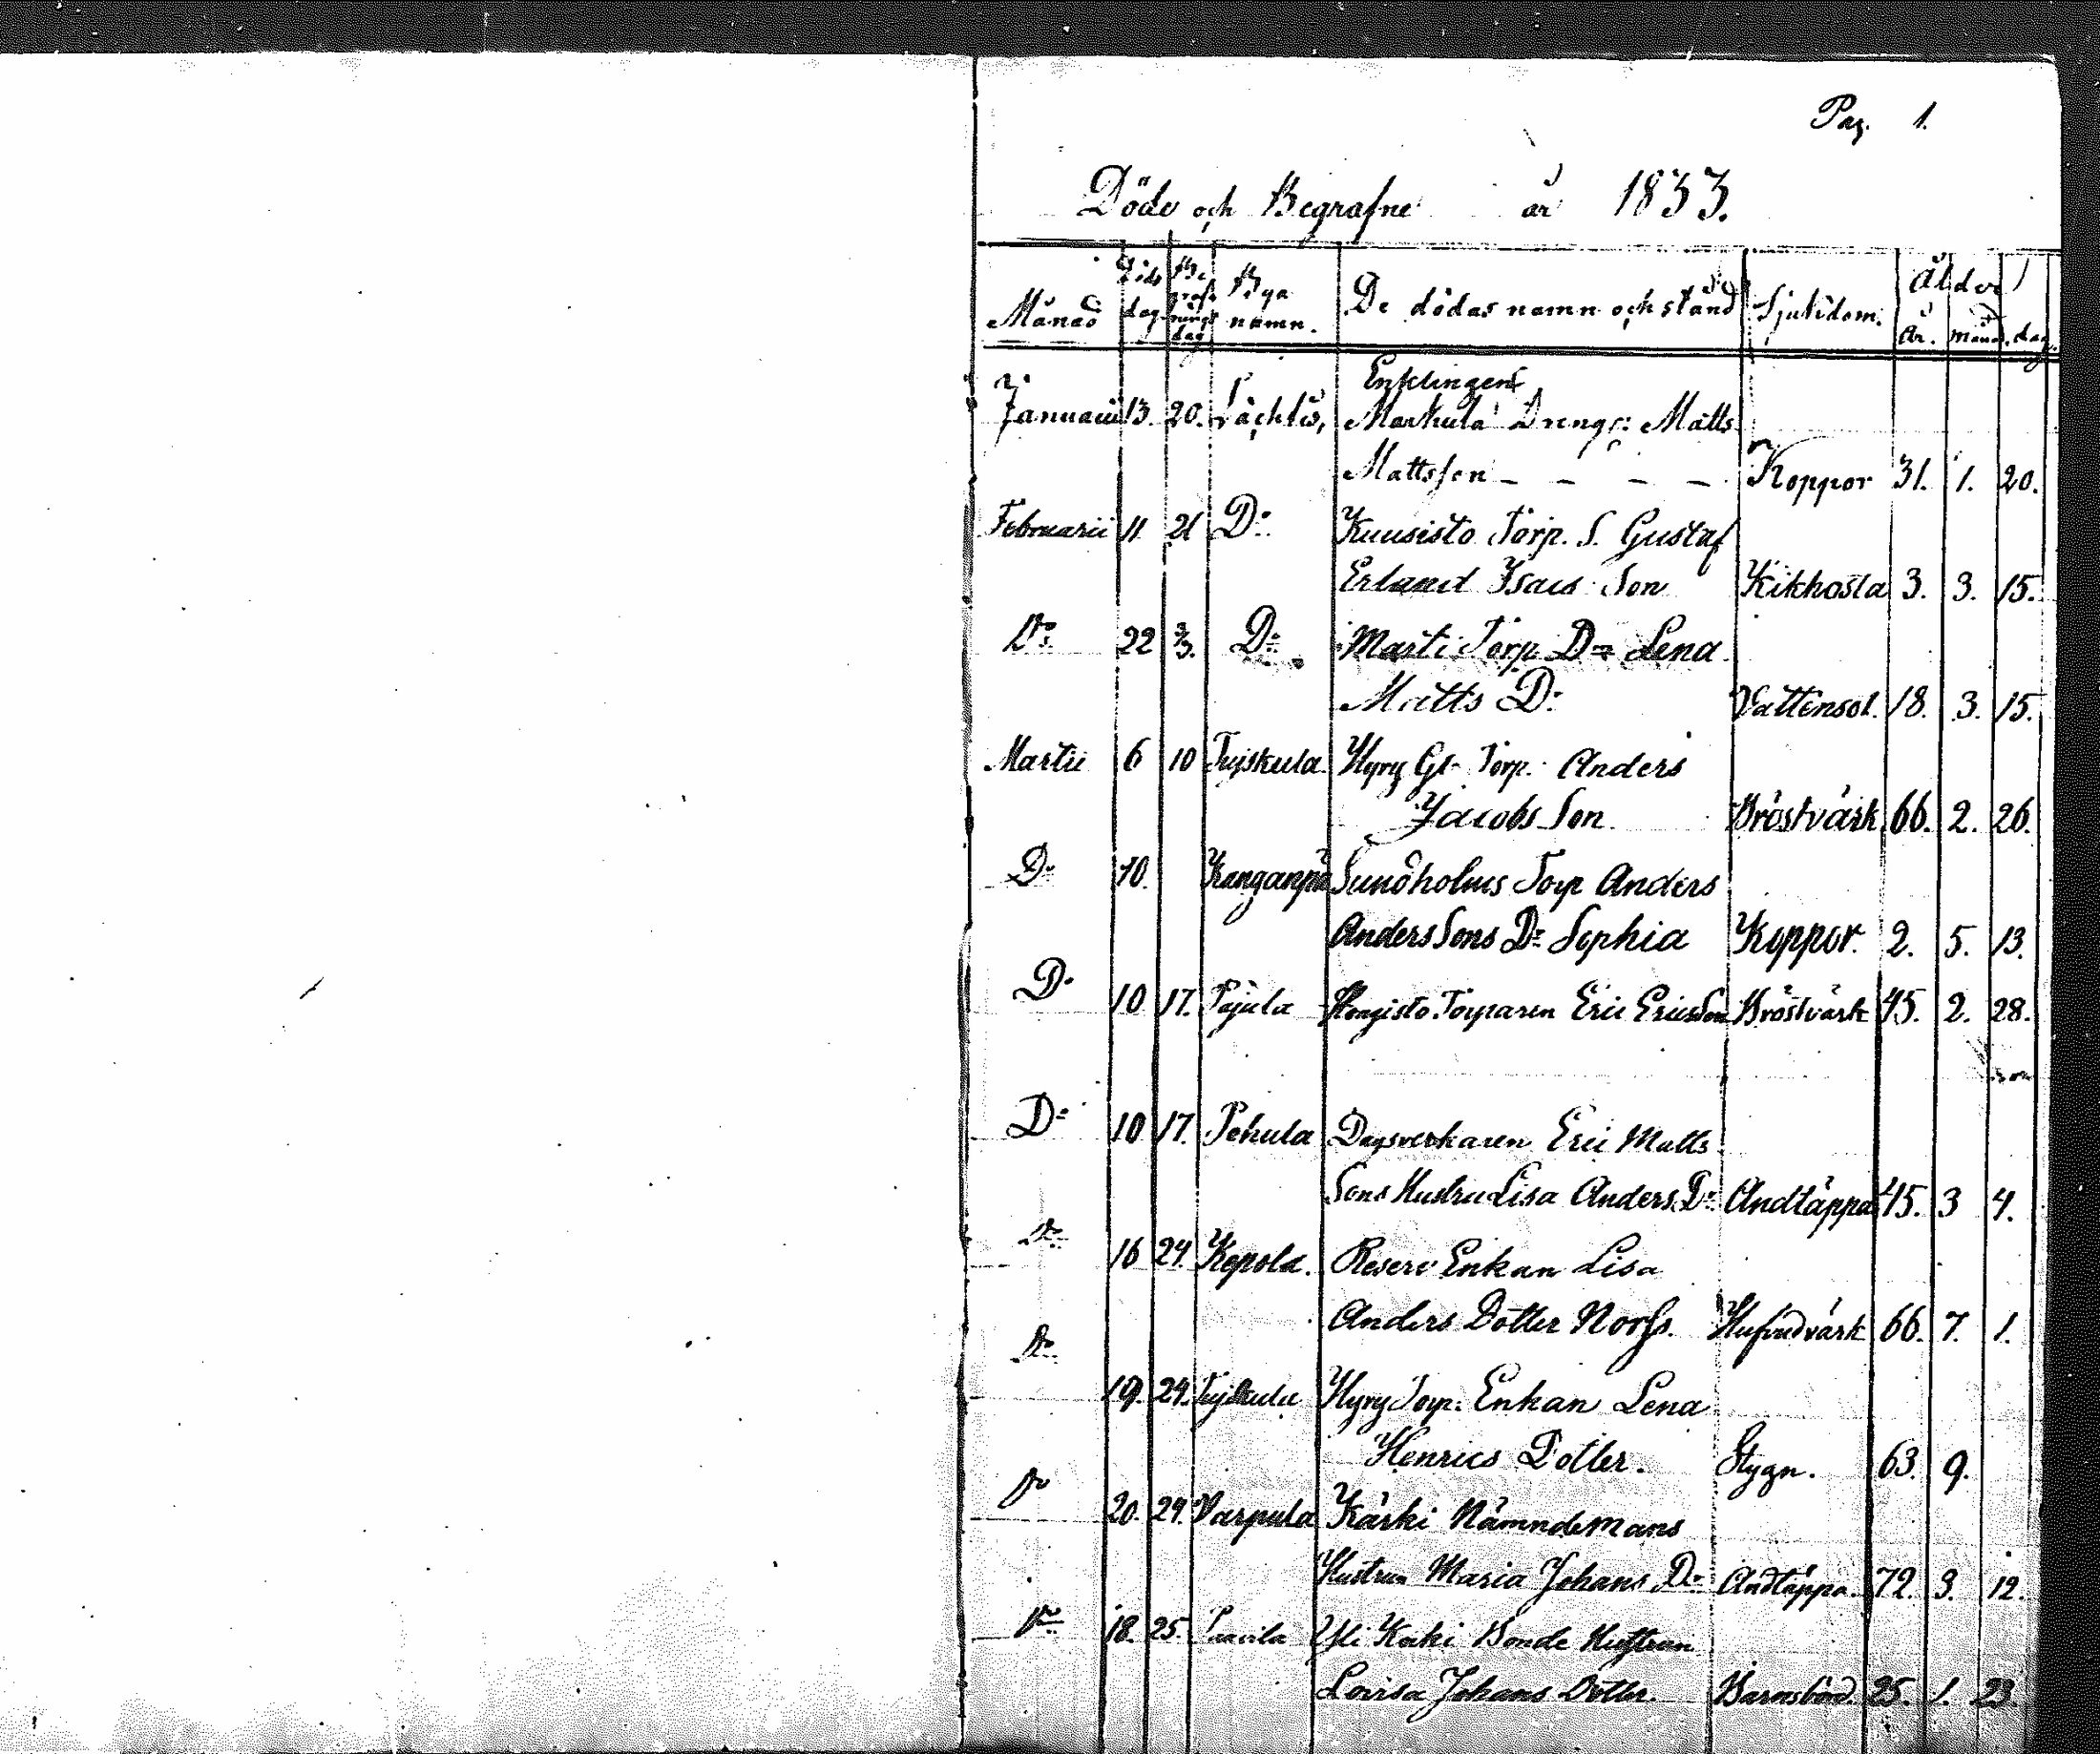 Pag. 1.
Döde och Begrafne år 1833.
Månad Döds dag Be grafnings dag Bya namn. De dödas namn och stånd Sjukdom. Ålder
år. månad. dag.
Enklingen
Januarii 13. 20. Markula Drengs: Matts
Mattsson - - - - Koppor 31. 1. 20.
Februarii 11 21 D:o Kuusisto Torp. S. Gustaf
Erland Isacs Son Kikhosta 3. 3. 15.
D:o 22 3/3. D:o Marti Torp. D:r Lena
Matts D:r Vattensot. 18. 3. 15.
Martii 6 10 Tujskula. Hyry Gl. Torp. Anders
Jacobs Son Bröstvärk 66. 2. 26.
D:o 10. Kanganpä Sundholms Torp Anders
Anders Sons D:r Sophia Koppor. 2. 5. 13.
D:o 10 17. Pajula Torparen Eric Ericsson Bröstvärk 45. 2. 28.
D:o 10 17. Pehula Dagsverkaren Eric Matts
Sons Hustru Lisa Anders D:r Andtäppa 45. 3 4.
D:o 16 24. Kepola. Reserv Enkan Lisa
Anders Dotter Norss. Hufvudvärk 66. 7. 1.
D:o 19. 24. Tujskula Hyry Torp. Enkan Lena
Henrics Dotter. Stygn. 63. 9.
D:o 20. 24. Varpula Kärki Nämndemans
Hustrun Maria Johans D:r Andtäppa. 72. 3. 12.
D:o 18. 25. Bonde Hustrun
Lovisa Johans Dotter. Barnsbörd. 25. 1. 23.